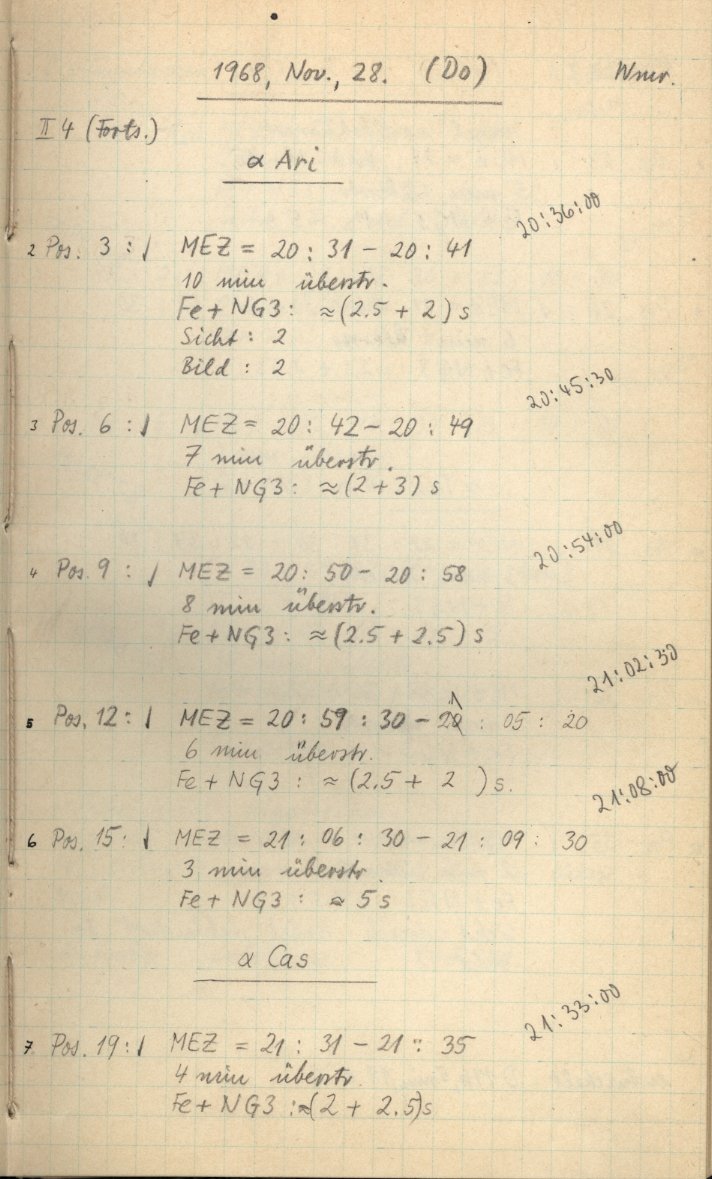 1968, Nov., 28. (Do) Wmr.
II 4 (Forts.)
α Ari
20:36:00
2 Pos. 3 : ↓ MEZ = 20 : 31 - 20 : 41
10 min überstr.
Fe + NG3 : ≈ (2.5 + 2) s
Sicht : 2
Bild : 2
20:45:30
3 Pos. 6 : ↓ MEZ = 20 : 42 - 20 : 49
7 min überstr.
Fe + NG3 : ≈ (2 + 3) s
20:54:00
4 Pos. 9 : ↓ MEZ = 20 : 50 - 20 : 58
8 min überstr.
Fe + NG3 : ≈ (2.5 + 2.5) s
21:02:30
5 Pos. 12 : ↓ MEZ = 20 : 59 : 30 - 21 : 05 : 20
6 min überstr.
Fe + NG3 : ≈ (2.5 + 2 ) s.
21:08:00
6 Pos. 15 : ↓ MEZ = 21 : 06 : 30 - 21 : 09 : 30
3 min überstr.
Fe + NG3 : ≈ 5 s
α Cas
21:33:00
7 Pos. 19 : ↓ MEZ = 21 : 31 - 21 : 35
4 min überstr.
Fe + NG3 : ≈ (2 + 2.5) s